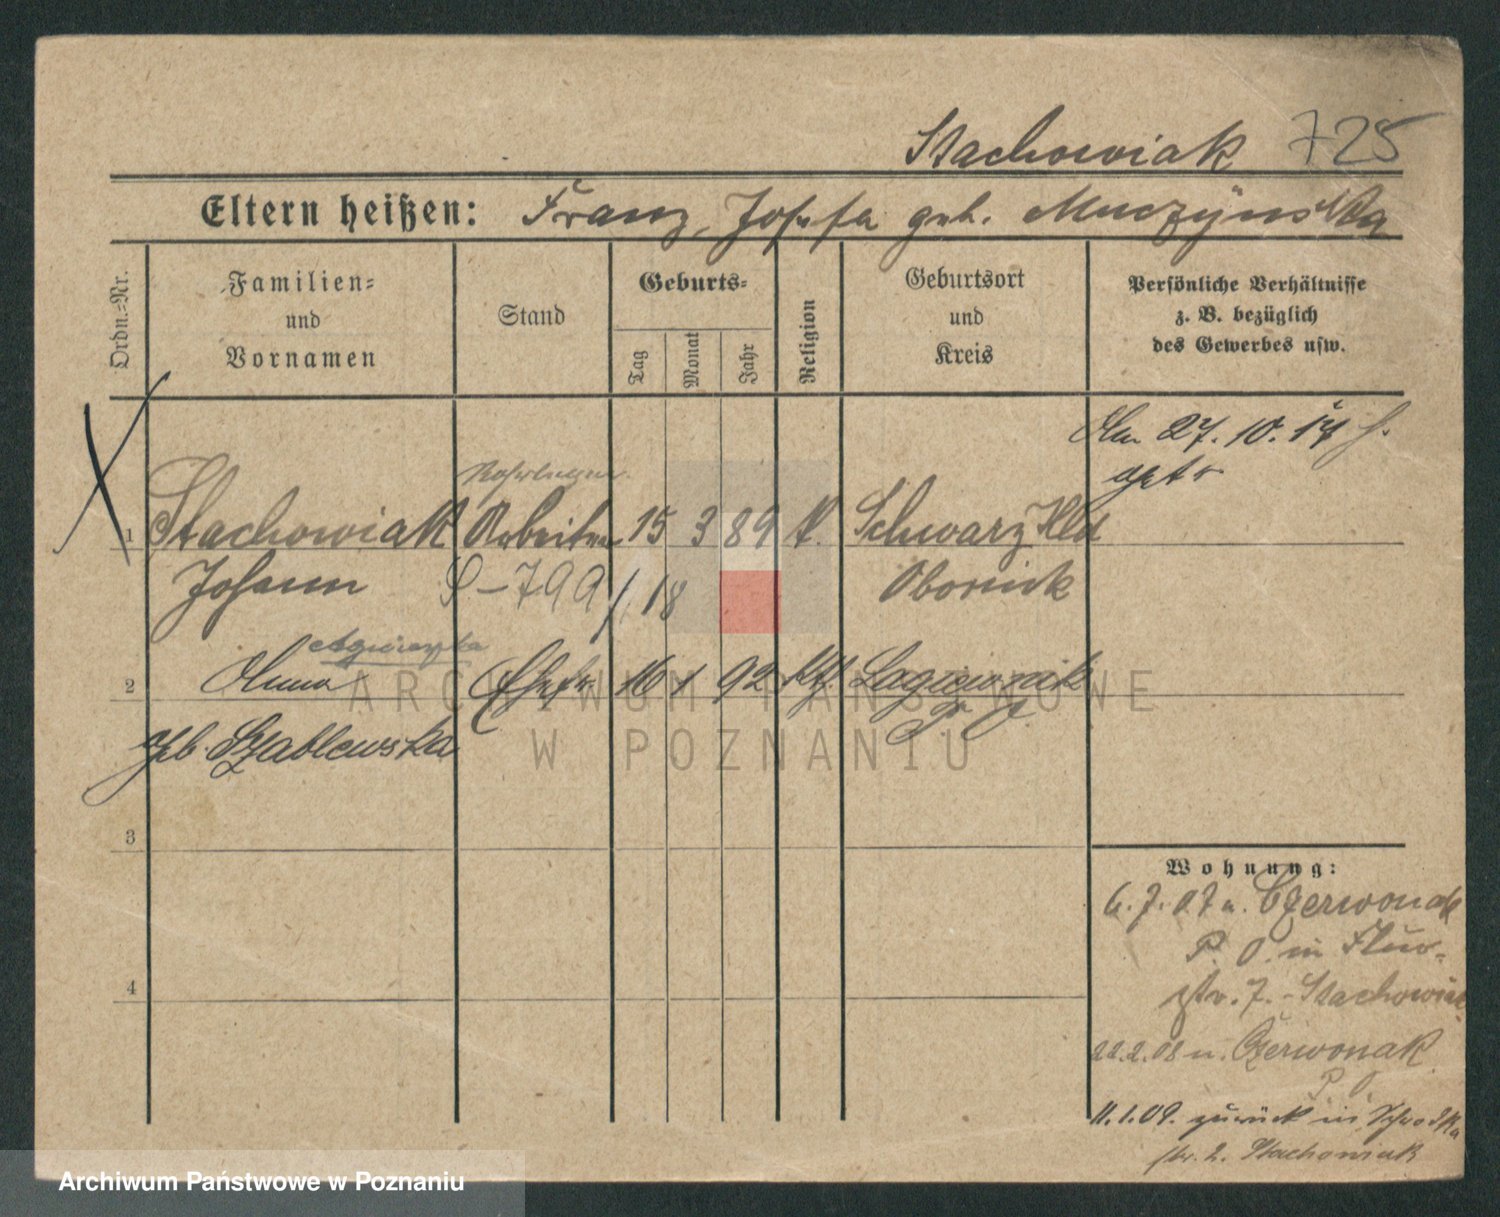 Stachowiak 725
Eltern heißen: Franz, Josefa geb. Muczÿnska
Ordn.-Nr.
Familien- und Vornamen
Stand
Geburts-
Tag
Monat
Jahr
Religion
Geburtsort und Kreis
Persönliche Verhältnisse z. B. bezüglich des Gewerbes usw.
27. 10. 14
1 Stachowiak Arbeiter 15 3 89 k. Schwarz Hld
Johann 18 Obornik
Agnieszka
2 Anna Ehefr 16 1 92 kth. Lagiewnik
P. O
geb. Szablewska
3
4
Wohnung:
6. 7. 07 n. Czerwonak
P. O. in
str. 7. - Stachowiak
22.2.08 n. Czerwonak
P. O
11.1.09. zurück in Schrodka
str. 2. Stachowiak
ARCHIWUM PAŃSTWOWE
W POZNANIU
Archiwum Państwowe w Poznaniu